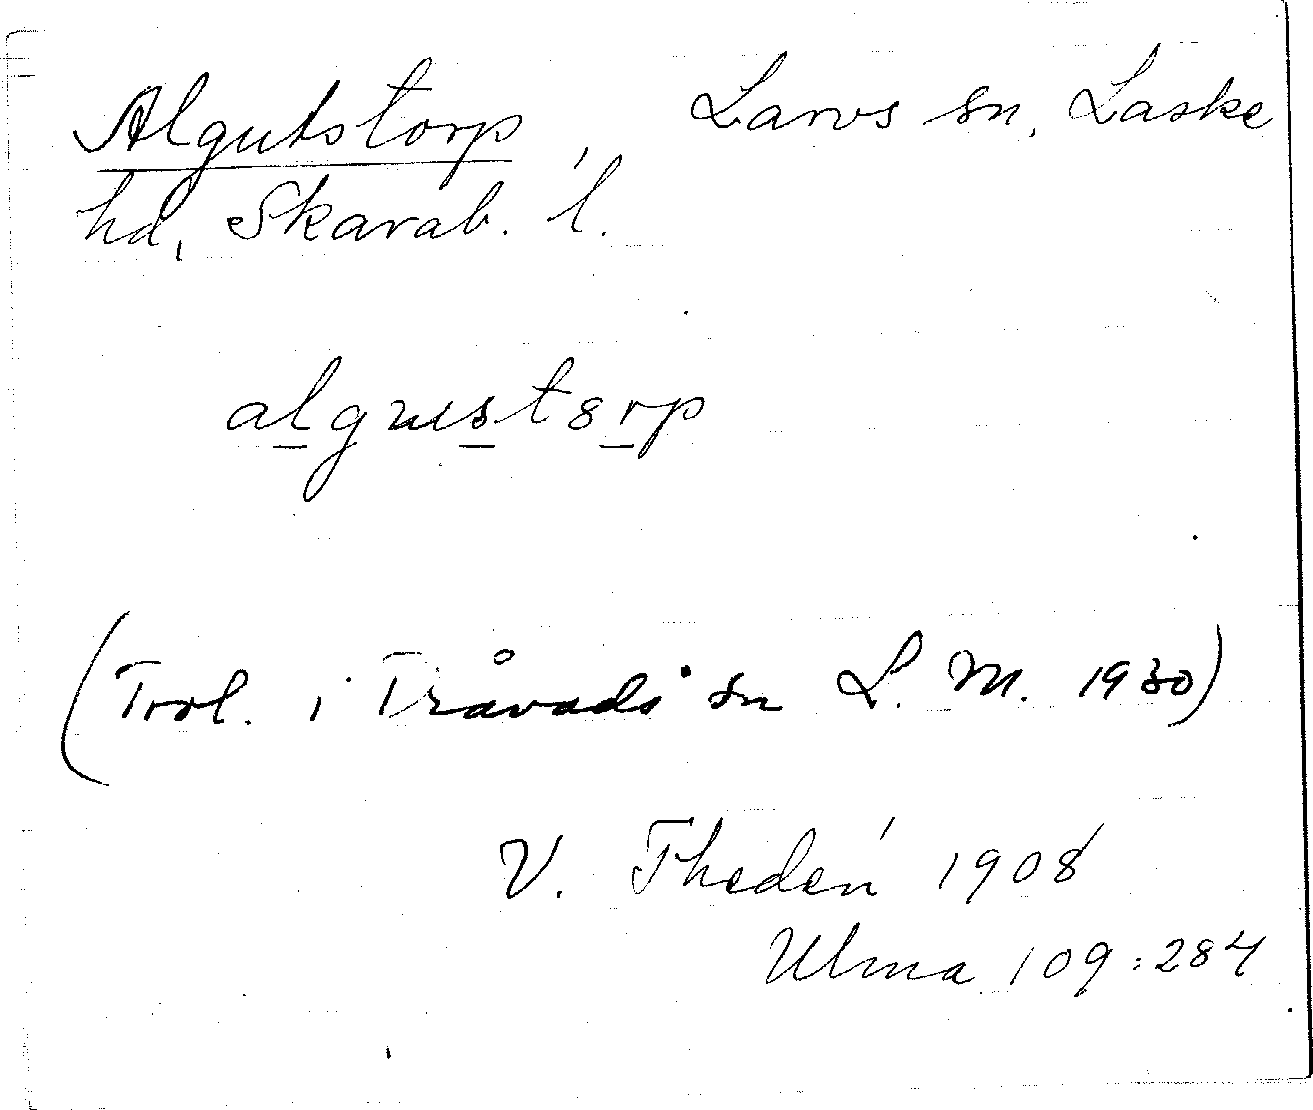 Algutstorp, Larvs sn, Laske
hd, Skarab. l.
algustorp
(Trol. i Tråvads sn L. M. 1930)
V. Thedén 1908
Ulma 109:284